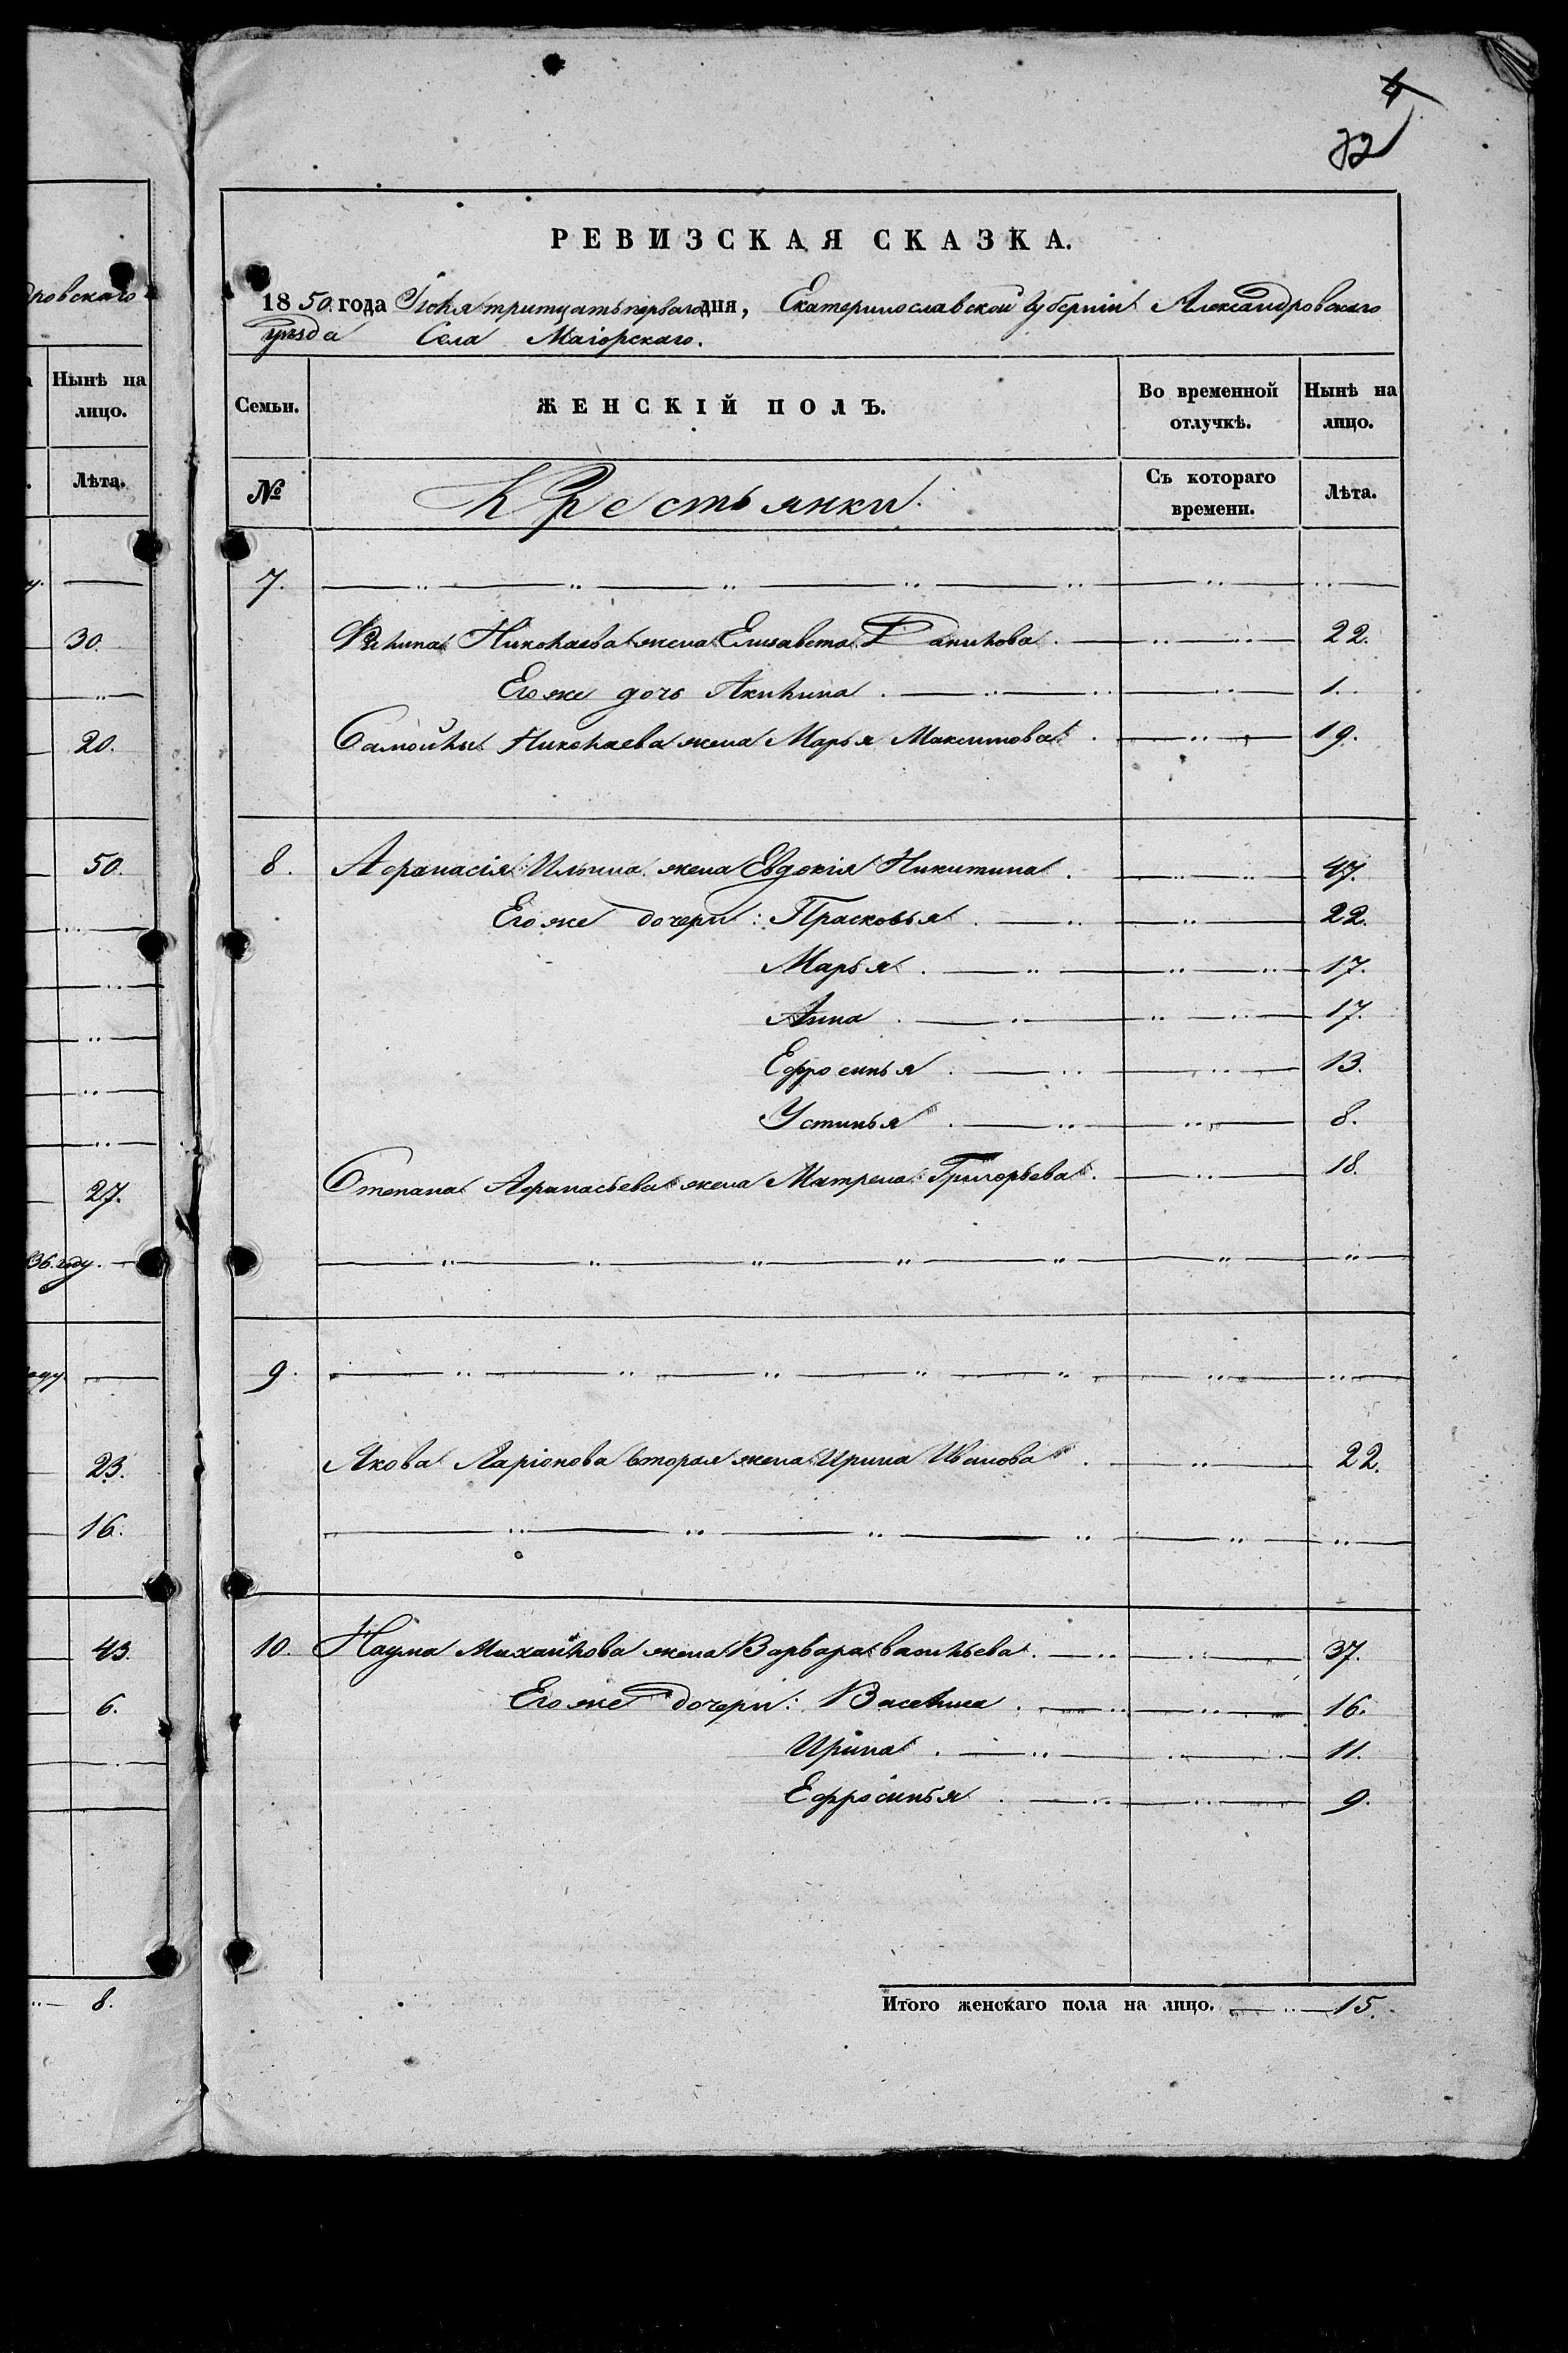 4
32
РЕВИЗСКАЯ СКАЗКА.
1850. года Іюля тритцать перваго дня, Екатеринославской губерніи Александровскаго
уѣзда Села Маіорскаго.
Семьи.
ЖЕНСКІЙ ПОЛЪ.
Во временной отлучкѣ.
Нынѣ на лицо.
№
Крестьянки.
Съ котораго времени.
Лѣта.
7.
Николаева жена Елизавета Данилова. 22.
Его же дочь Акилина. 1.
Самойлы Николаева жена Марья Максимова. 19.
8. Афанасія Ильина жена Евдокія Никитина. 47.
Его же дочери: Прасковья. 22.
Марья. 17.
Анна. 17.
Ефросинья. 13.
Устинья. 8.
Степана Афанасьева жена Матрена Григорьева. 18.
9.
Якова Ларіонова вторая жена Ирина Иванова. 22.
10. Наума Михайлова жена Варвара Васильева. 37.
Его же дочери: Василиса. 16.
Ирина. 11.
Ефросинья. 9.
Итого женскаго пола на лицо. 15.
дровскаго
Нынѣ на
лицо.
Лѣта.
30.
20.
50.
27.
36. году.
году
23.
16.
43.
6.
8.